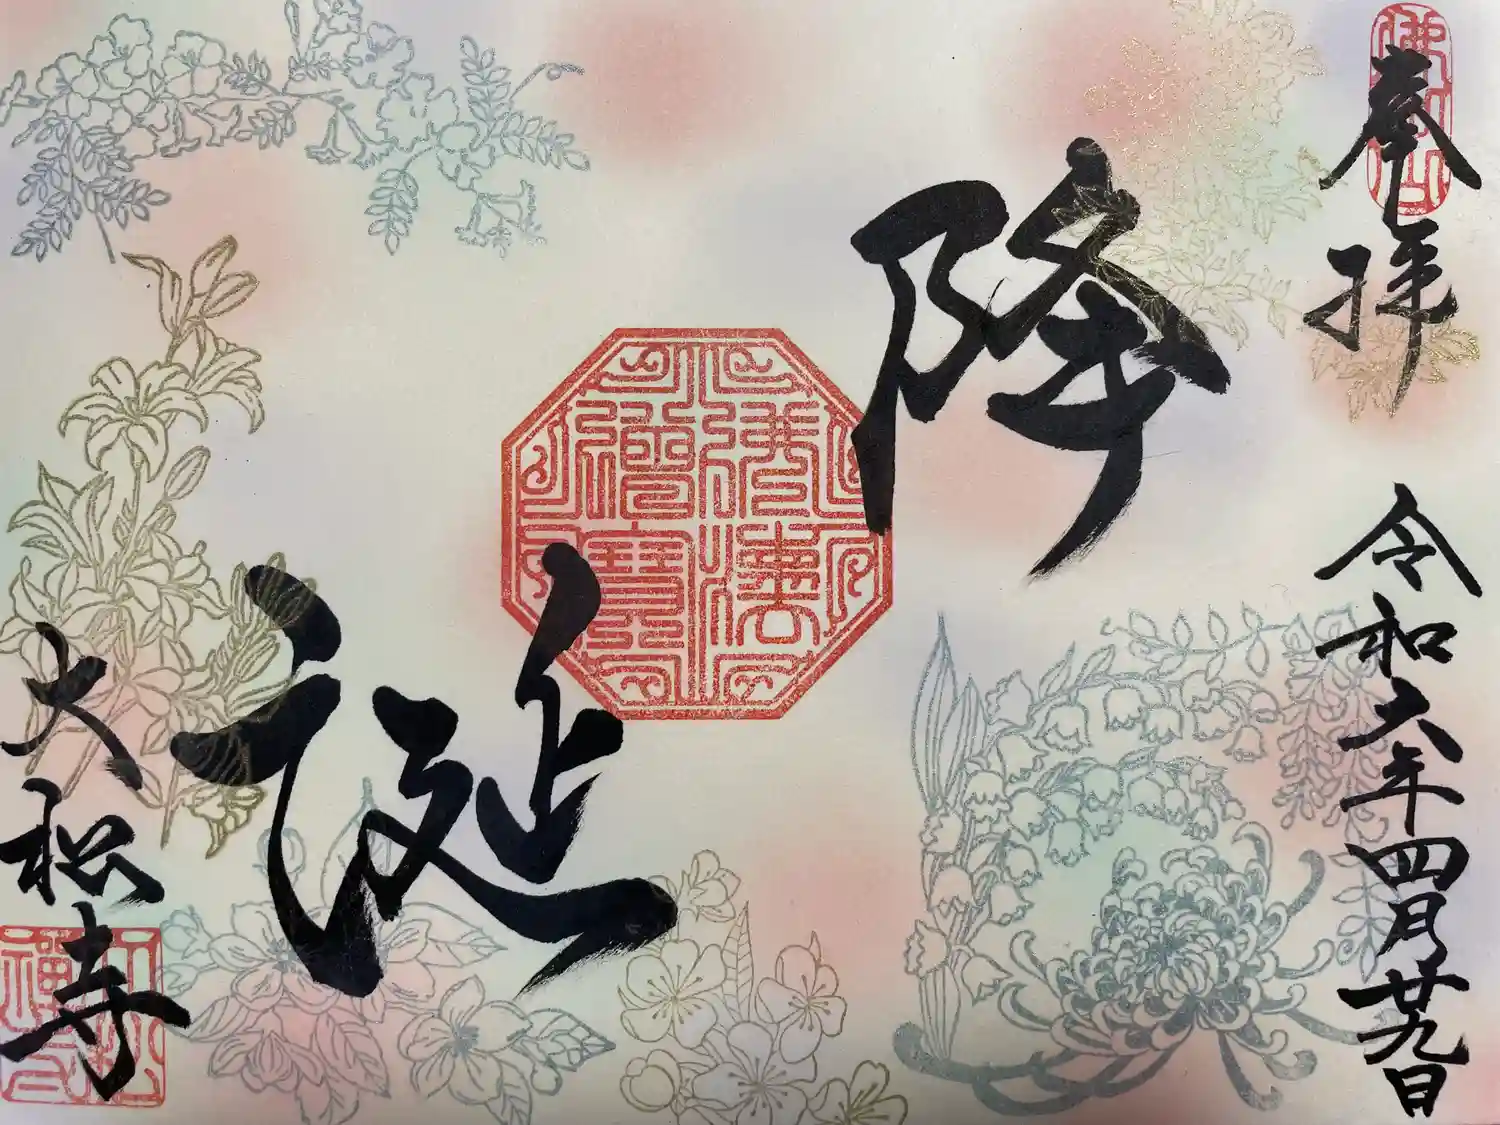 奉拝
令和六年四月廿九日
降
誕
大松寺